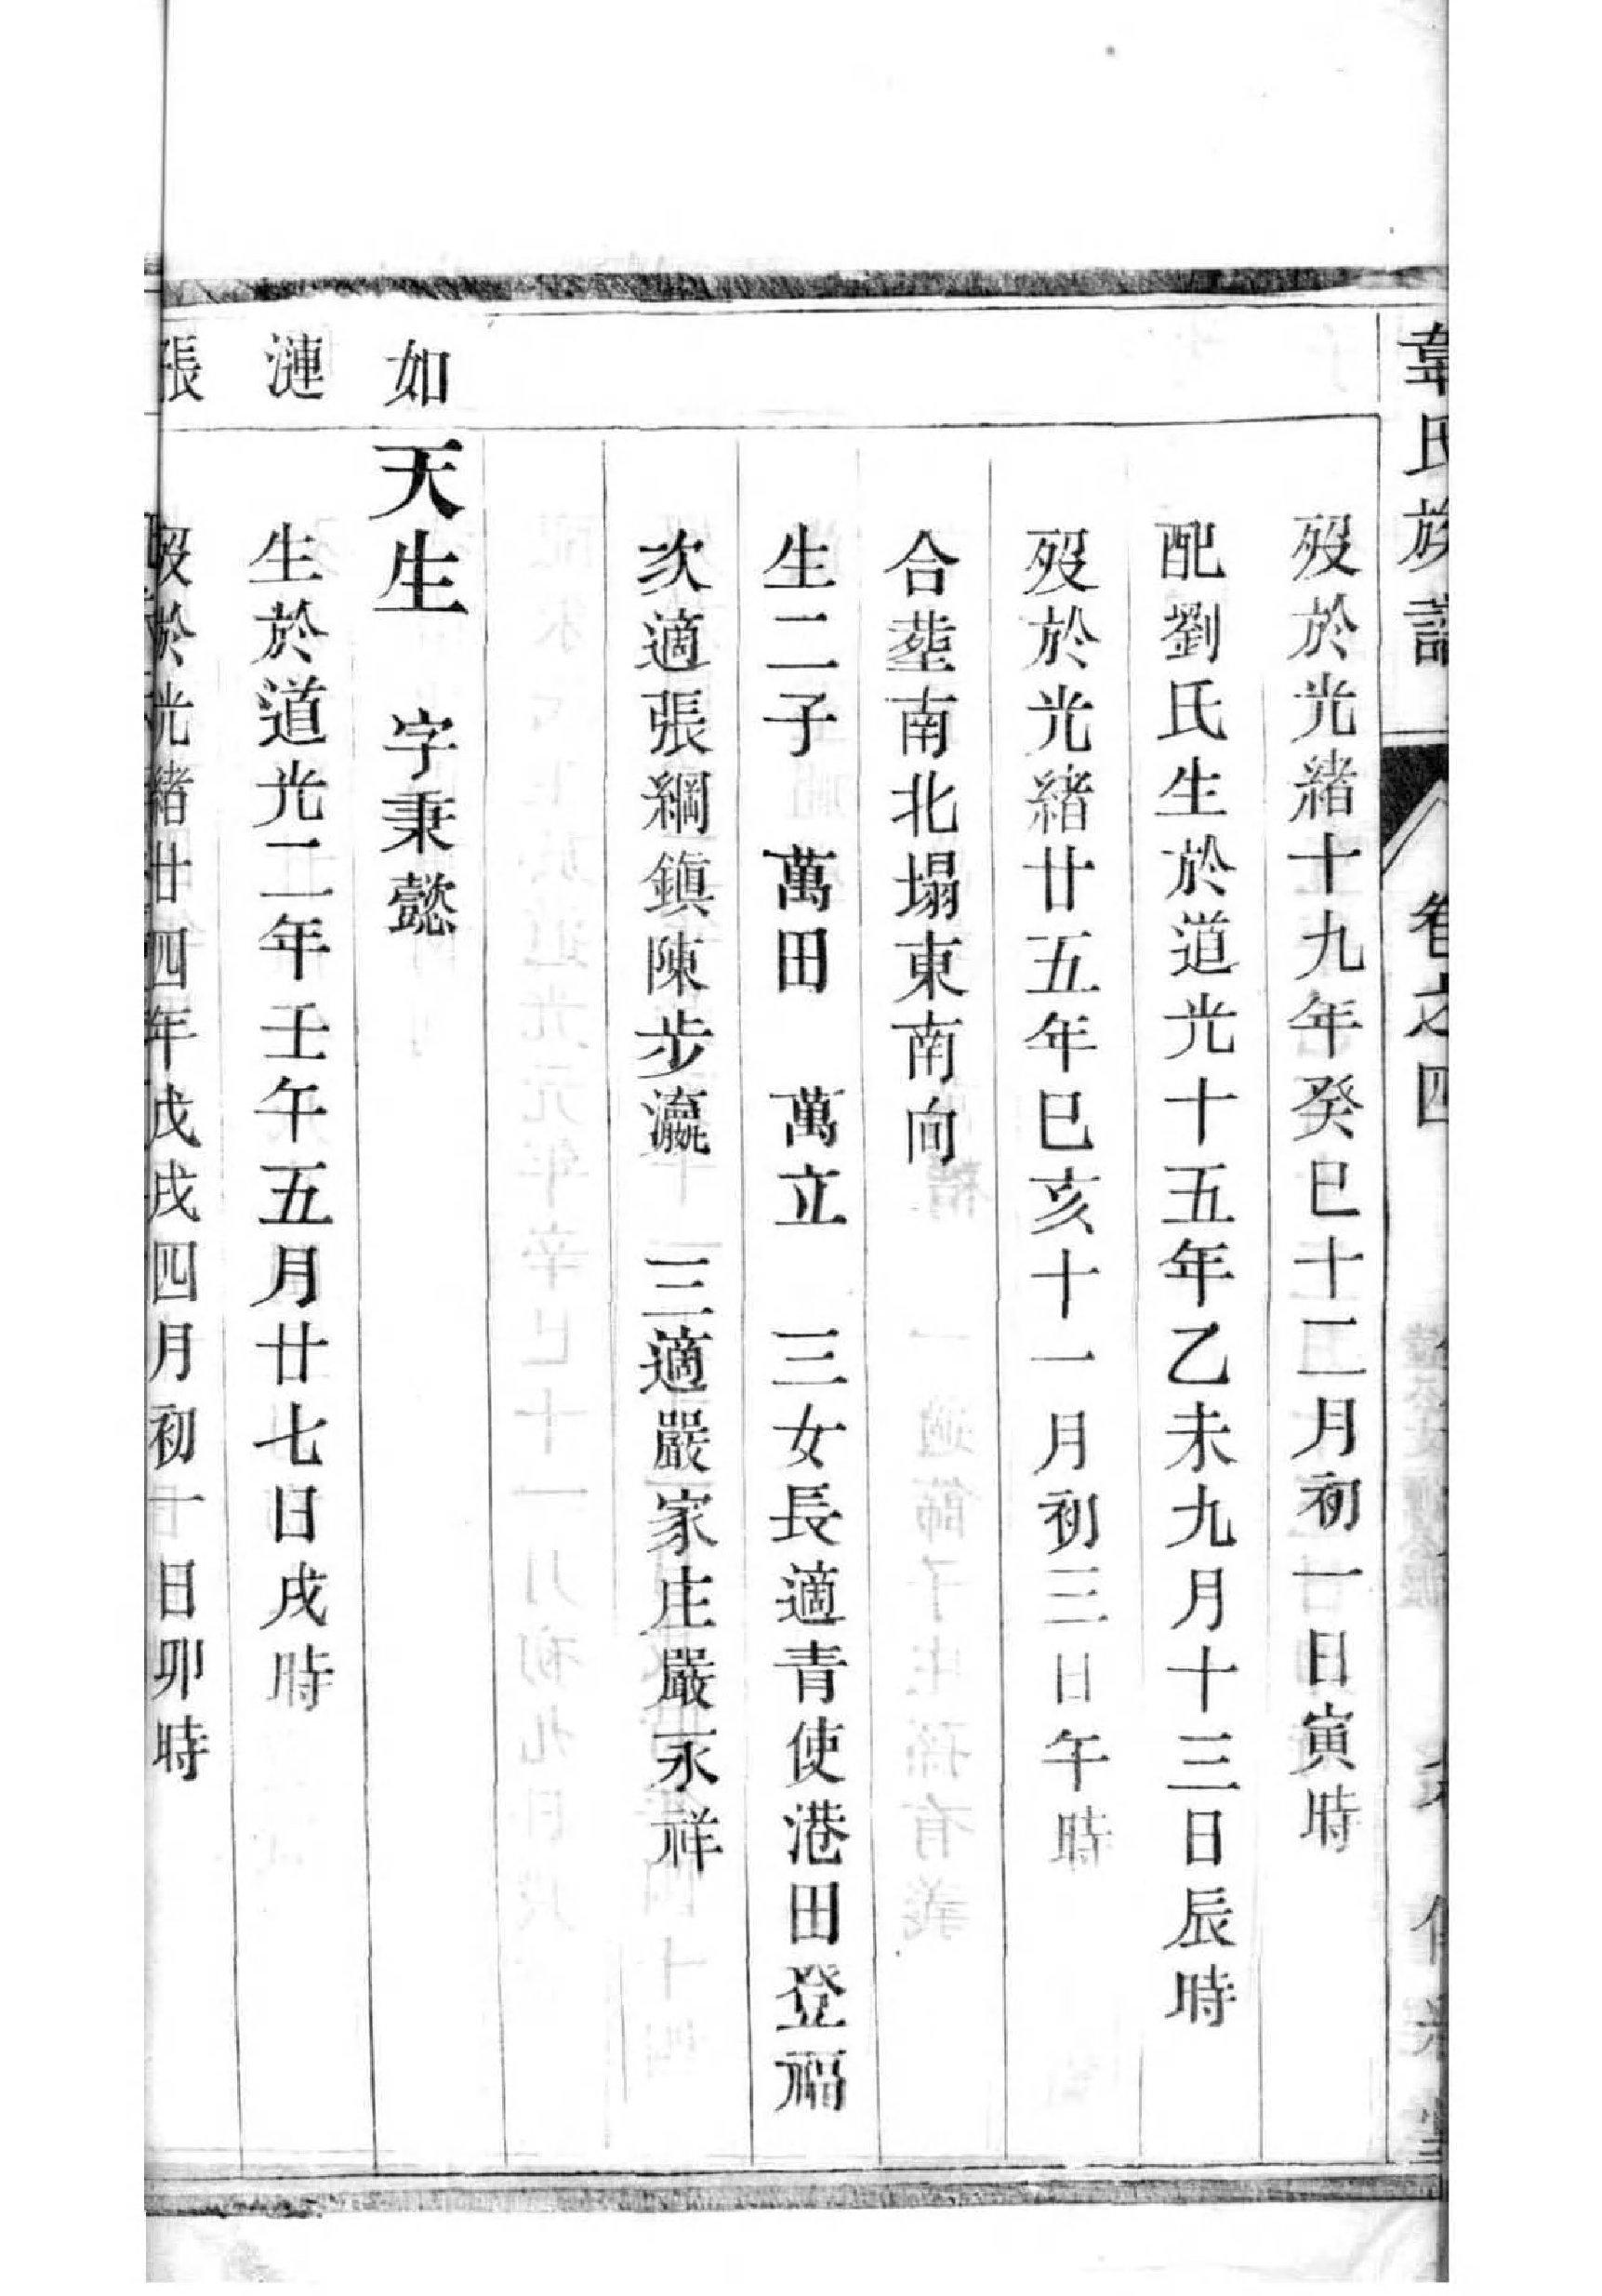 韋氏族譜 卷之四
歿於光緒十九年癸巳十二月初一日寅時
配劉氏生於道光十五年乙未九月十三日辰時
歿於光緒廿五年巳亥十一月初三日午時
合塟南北塌東南向
生二子 萬田 萬立 三女長適青使港田登福
次適張綱鎮陳步瀛 三適嚴家庄嚴永祥
如 天生 字秉懿
漣 生於道光二年壬午五月廿七日戌時
張 歿於光緒廿四年戊戌四月初十日卯時